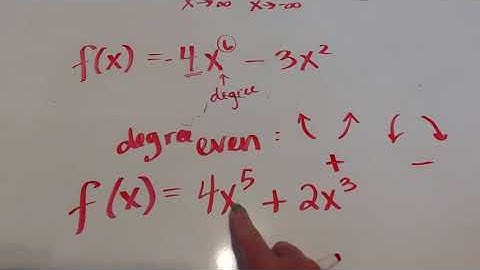 x→∞ x→-∞
f(x) = -4x⁶ - 3x²
degree
degree even : ↖ ↗ ↙ ↘
+ −
f(x) = 4x⁵ + 2x³